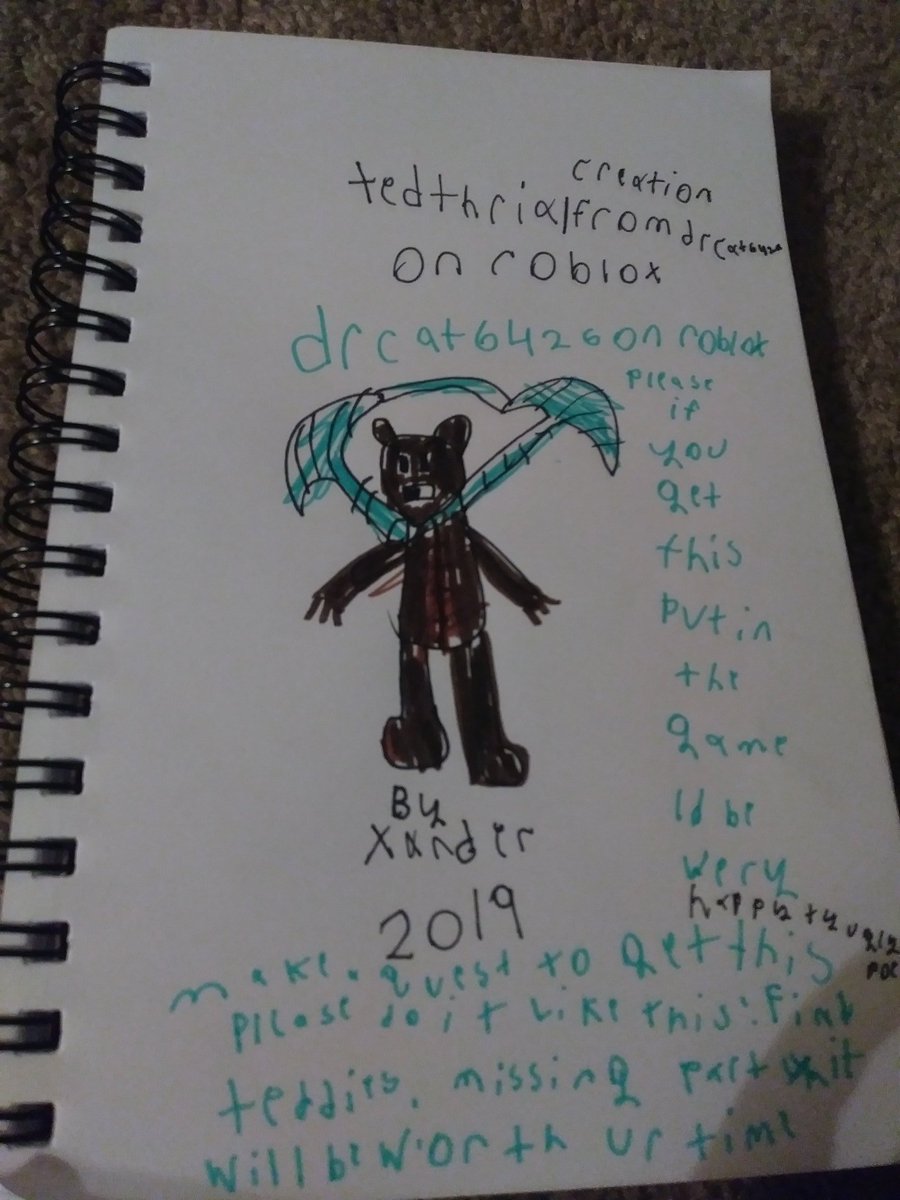 creation
tedthrial/from drcat6426
on roblox
drcat6426 on roblox
please
if
you
get
this
put in
the
game
Id be
wery
happy ty ugly
make a quest to get this
please do it like this: find
teddies. missing part
will be worth ur time
By
Xander
2019